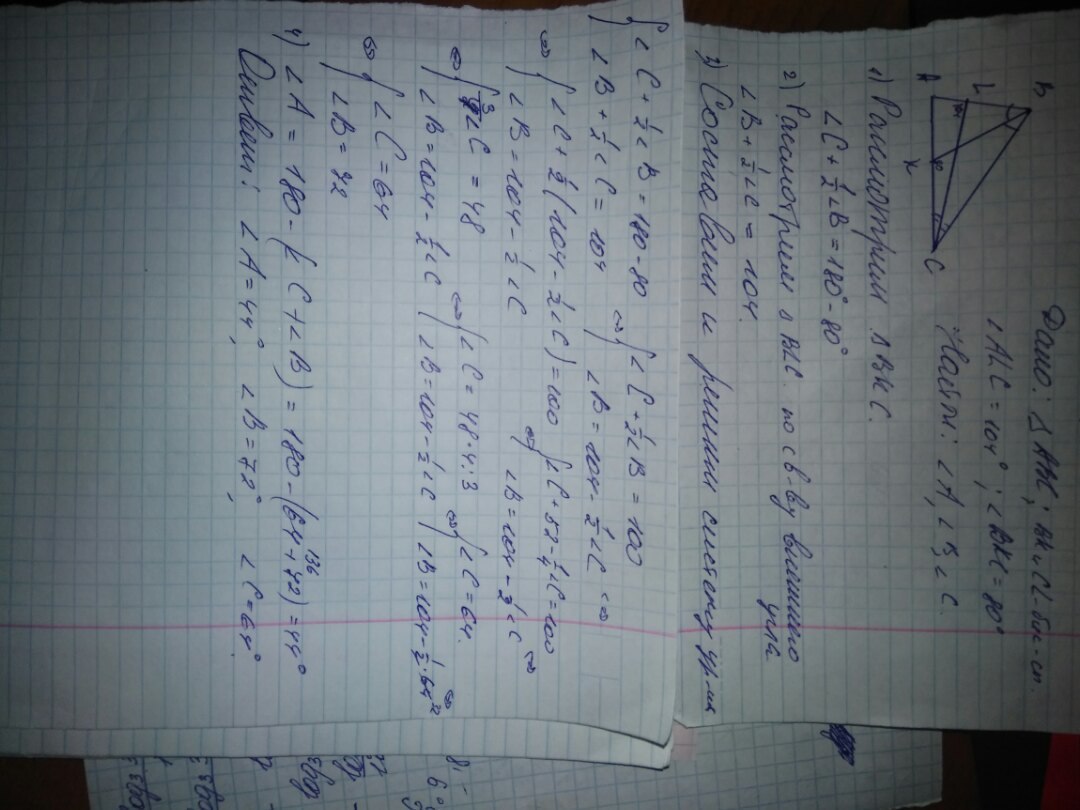 Дано: △ABC; BK и CL-бис-сы.
∠ALC = 104°; ∠BKC = 80°
Найти: ∠A, ∠B, ∠C.
B
L
A
K
C
1) Рассмотрим △BKC.
∠C + 1/2∠B = 180° - 80°
2) Рассмотрим △BLC. по св-ву внешнего угла
∠B + 1/2∠C = 104.
3) Составим и решим систему ур-ия
{∠C + 1/2∠B = 180-80 ⇔ {∠C + 1/2∠B = 100
∠B + 1/2∠C = 104 ∠B = 104 - 1/2∠C ⇔
⇔ {∠C + 1/2(104 - 1/2∠C) = 100 ⇔ {∠C + 52 - 1/4∠C = 100
∠B = 104 - 1/2∠C ∠B = 104 - 1/2∠C ⇔
⇔ {3/4∠C = 48 ⇔ {∠C = 48·4:3 ⇔ {∠C = 64.
∠B = 104 - 1/2∠C ∠B = 104 - 1/2∠C ∠B = 104 - 1/2·64 32 ⇔
⇔ {∠C = 64
∠B = 72
4) ∠A = 180 - (∠C + ∠B) = 180 - (64 + 72) = 44°
136
Ответ: ∠A = 44°, ∠B = 72°, ∠C = 64°.